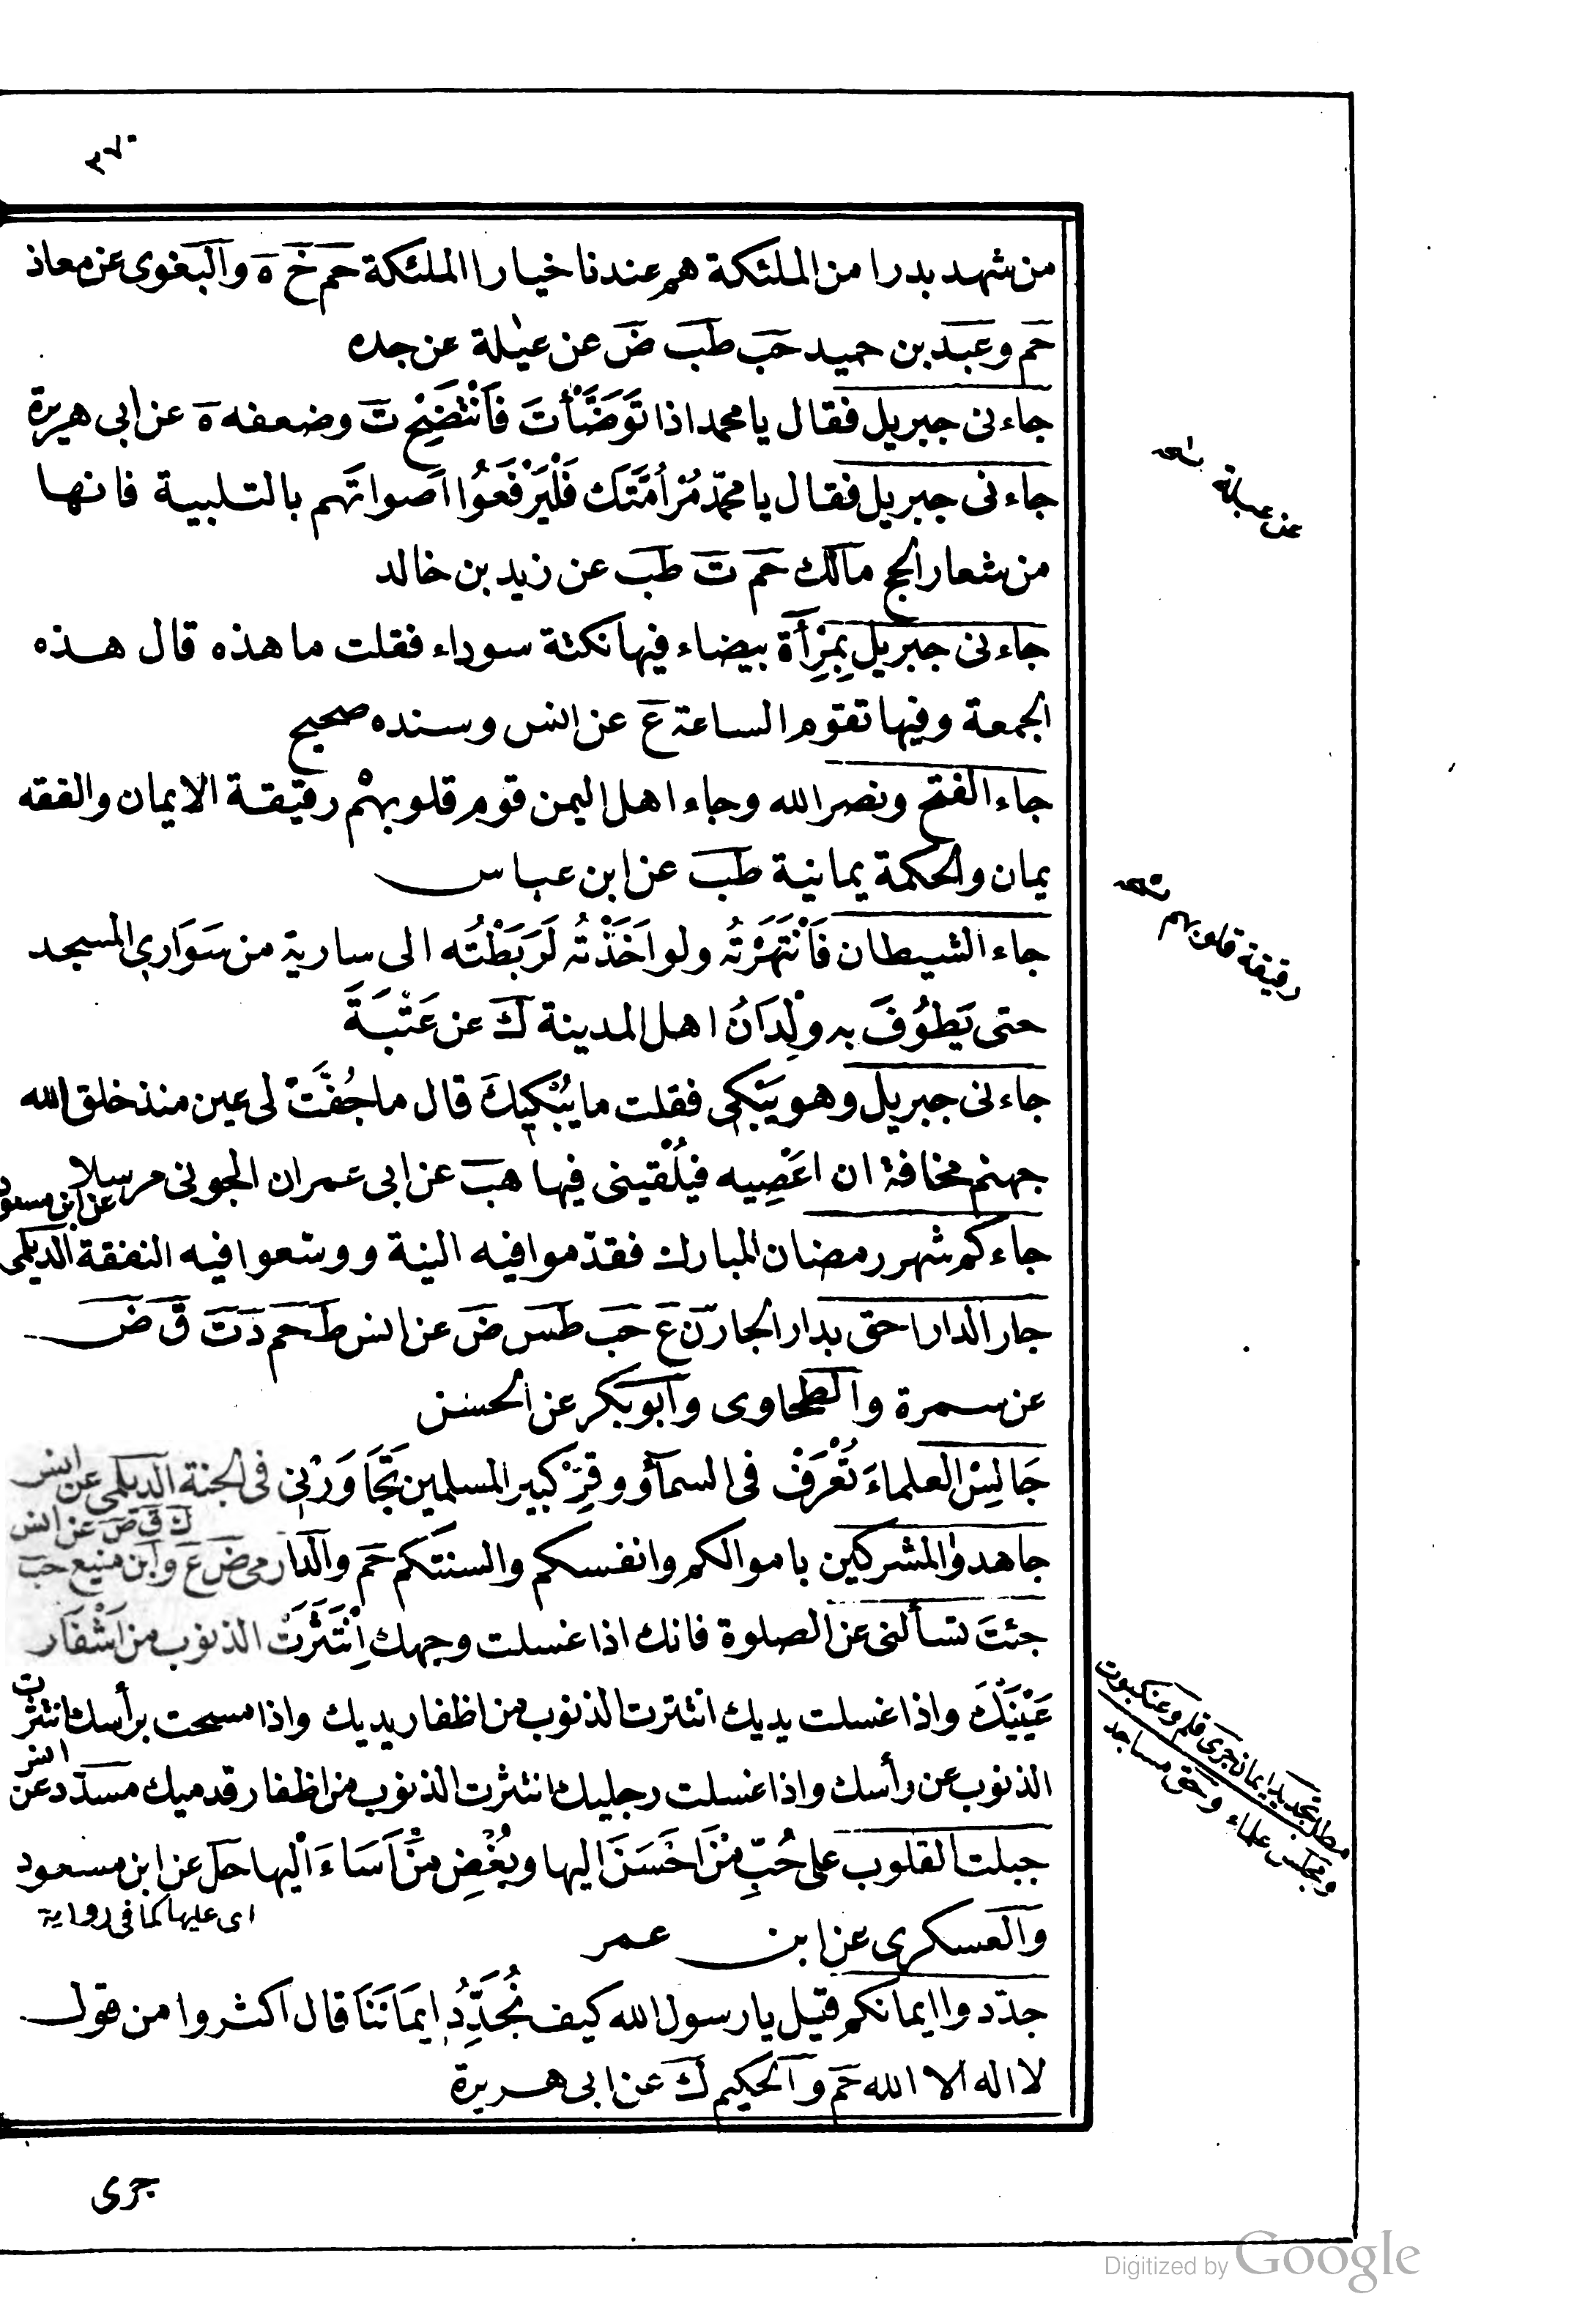 ٢٧٠
من شهد بدرا من الملئكة هم عندنا خيارا الملئكة حم خ ه والبغوى عن معاذ
حم وعبد بن حميد حب طب ض عن عيلة عن جده
جاءنى جبريل فقال يا محمد اذا تَوَضَّأْتَ فَانْتَضِحْ ت وضعفه ه عن ابى هريرة
جاءنى جبريل فقال يا محمّد مُرْ اُمَّتَكَ فَلْيَرْفَعُوا اَصواتَهم بالتلبية فانها
من شعار الحج مالك حم ت طب عن زيد بن خالد
جاءنى جبريل بِمِرْأَة بيضاء فيها نكتة سوداء فقلت ما هذه قال هذه
الجمعة وفيها تقوم الساعة ع عن انس وسنده صحيح
جاء الفتح ونصر الله وجاء اهل اليمن قوم قلوبهْم رقيقة الايمان والفقه
يمان والحكمة يمانية طب عن ابن عباس
جاء الشيطان فَانْتَهَرْتُه ولو اَخَذْتُه لَرَبَطْتُه الى سارية من سَوَارِى المسجد
حتى يَطُوفَ به وِلْدَانُ اهل المدينة ك عن عَتْبَةَ
جاءنى جبريل وهو يَبْكِى فقلت ما يُبْكِيكَ قال ما جُفَّتْ لى عين منذ خلق الله
جهنم مخافة ان اعَصِيه فيُلْقينى فيها هب عن ابى عمران الجونى مرسلا
عن ابن مسعود
جاءكم شهر رمضان المبارك فقدّموا فيه النية ووسّعوا فيه النفقة الديلمى
جار الدار احق بدار الجار ن ع حب طس ض عن انس ط حم د ت ق ض
عن سمرة والطحاوى وابو بكر عن الحسن
جَالِسِ العلماءَ تُعْرَفْ فى السمآء ووقِرْ كبير المسلمين تُجَاوِرْنِى فى الجنة الديلمى عن انس
ك ق ض عن انس
جاهدوا المشركين باموالكم وانفسكم والسنتكم حم والدارمى ض ع وابن منيع حب
جئتَ تسألنى عن الصلوة فانك اذا غسلت وجهك اِنْتَثَرَتْ الذنوب من اَشْفَار
عَيْنَيْكَ واذا غسلت يديك انتثرت الذنوب من اظفار يديك واذا مسحت برأسك انتثرت
الذنوب عن رأسك واذا غسلت رجليك انتثرت الذنوب من اظفار قدميك مسدّد عن انس
جبلت القلوب على حُبِّ مَنْ اَحْسَنَ اليها وبُغْضِ مَنْ اَسَاءَ اليها حل عن ابن مسعود
اى عليها كما فى رواية
والعسكرى عن ابن عمر
جدّدوا ايمانكم قيل يا رسول الله كيف نُجَدِّدُ اِيمَانَنَا قال اكثروا من قول
لا اله الا الله حم والحكيم ك عن ابى هريرة
جرى
عن عبلة نسخه
رقيقة قلوبهم نسخه
مطلب تجديد ايمان جرى قلم وعنكبوت
ومجلس علماء وحق مساجد
Digitized by Google